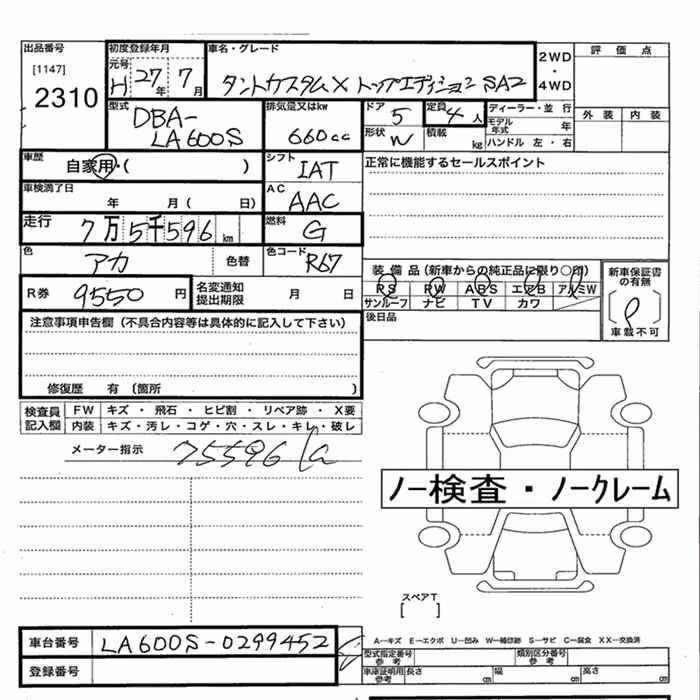 出品番号
[1147]
2310
初度登録年月
元号 H 27年 7月
車名・グレード
タントカスタムX トップエディション SA2
2WD
・
4WD
評価点
外装 内装
型式
DBA-
LA600S
排気量又はkw
660cc
ドア 5
形状 W
定員 4人
積載 kg
ディーラー・並行
モデル年式 年
ハンドル 左・右
車歴
自家用・( )
シフト IAT
正常に機能するセールスポイント
車検満了日
年 月 ( 日)
AC AAC
走行 7万5千596km
燃料 G
色 アカ 色替
色コード R67
装備品(新車からの純正品に限り○印)
PS PW ABS エアB アルミW
サンルーフ ナビ TV カワ
新車保証書の有無
車載不可
R券 9550円
名変通知提出期限 月 日
後日品
注意事項申告欄(不具合内容等は具体的に記入して下さい)
修復歴 有(箇所 )
検査員記入欄
FW キズ・飛石・ヒビ割・リペア跡・X要
内装 キズ・汚レ・コゲ・穴・スレ・キレ・破レ
メーター指示 75596
ノー検査・ノークレーム
スペアT
[ ]
車台番号 LA600S-0299452
登録番号
A―キズ E―エクボ U―凹み W―補修跡 S―サビ C―腐食 XX―交換済
型式指定番号 参考
類別区分番号 参考
車庫証明用 参考
長さ cm 幅 cm 高さ cm